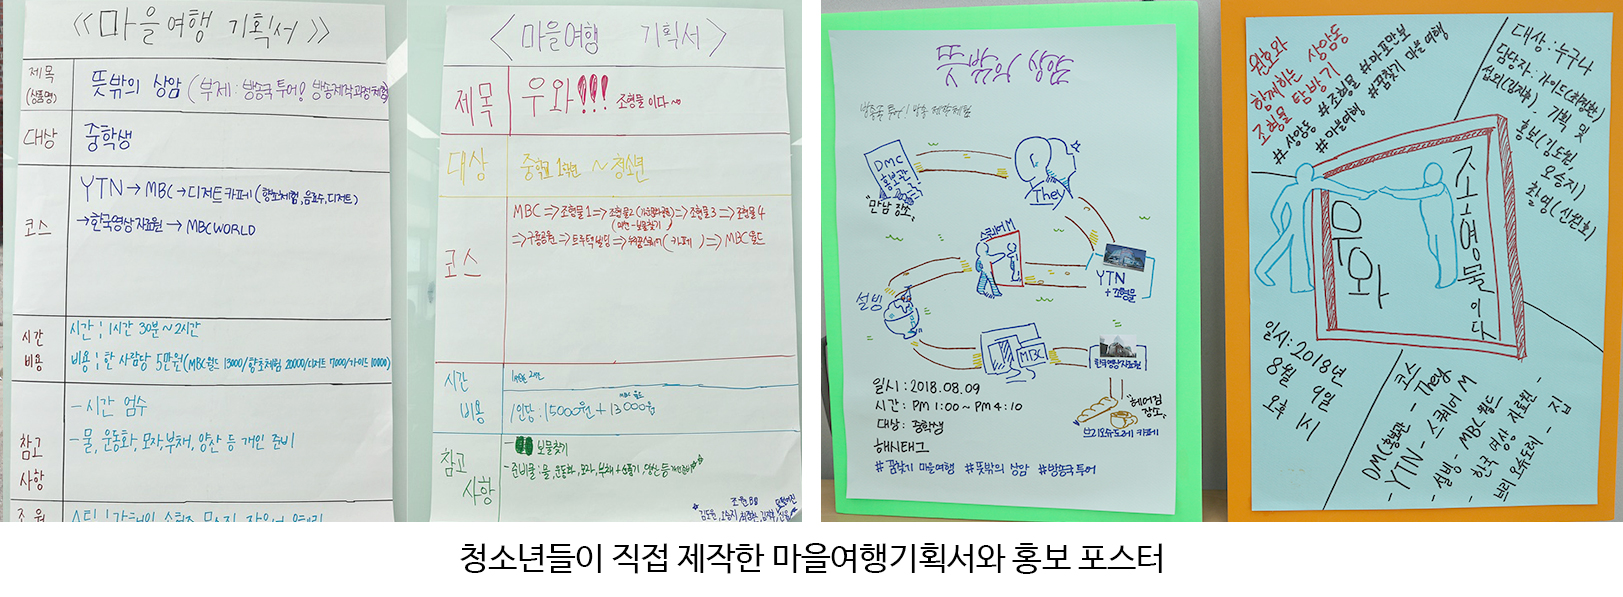 《마을여행 기획서》
제목
(상품명)
뜻밖의 상암 (부제: 방송국 투어! 방송제작과정체험)
대상
중학생
코스
YTN → MBC → 디저트카페 (향초체험, 음료수, 디저트)
→ 한국영상자료원 → MBC WORLD
시간
비용
시간 : 1시간 30분 ~ 2시간
비용 : 한 사람당 5만원 (MBC월드 13000/향초체험 20000/디저트 7000/가이드 10000)
참고
사항
- 시간 엄수
- 물, 운동화, 모자, 부채, 양산 등 개인 준비
조원
<마을여행 기획서>
제목
우와!!! 조형물이다~
대상
중학교 1학년 ~ 청소년
코스
MBC ⇒ 조형물1 ⇒ 조형물2 ⇒ 조형물3 ⇒ 조형물4
(미션-보물찾기)
⇒ 구름공원 ⇒ (카페) ⇒ MBC월드
시간
비용
1인당 : 15000원 + 13000원
MBC 월드
참고
사항
- 보물찾기
- 준비물 : 물, 운동화, 모자, 부채
조원
김도원, 오승지
뜻밖의 상암
방송국 투어! 방송 제작체험
DMC
홍보관
"만남 장소"
They
스퀘어M
YTN
+조형물
설빙
MBC
한국영상자료원
"헤어짐
장소"
브리오슈도레 카페
일시 : 2018.08.09
시간 : PM 1:00 ~ PM 4:10
대상 : 중학생
해시태그
#꿈찾기 마을여행 #뜻밖의 상암 #방송국투어
원호와
함께하는 상암동
조형물 탐방기
#상암동 #조형물 #마포만보
#마을여행 #꿈찾기 마을여행
대상 : 누구나
담당자 : 가이드(최정환)
섭외(김지후), 기획 및
홍보(김도원,
오승지)
촬영(신원호)
우와
조형물이다
일시 : 2018년
8월 9일
오후 1시
코스
DMC홍보관 - They
- YTN - 스퀘어 M
- 설빙 - MBC 월드
- 한국 영상 자료원 -
브리오슈도레 - 집
청소년들이 직접 제작한 마을여행기획서와 홍보 포스터